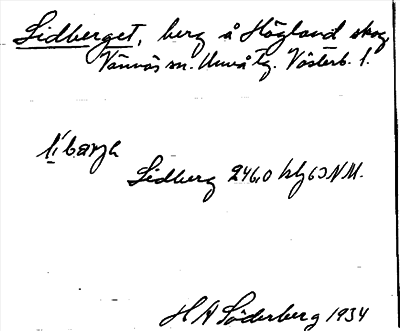 Lidberget, berg å Högland skog,
Vännäs sn. Umeå tg. Västerb. l.
Lidberg 246,0 blg 63 NV.
H A Söderberg 1934